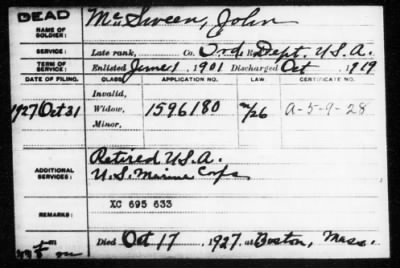 DEAD
NAME OF SOLDIER: McSween, John
SERVICE: Late rank, Co. Ord. R Dept. U.S.A.
TERM OF SERVICE: Enlisted June 1 1901 Discharged Oct 1919
DATE OF FILING. CLASS. APPLICATION NO. LAW. CERTIFICATE NO.
Invalid,
1927 Oct 31 Widow, 1596180 A-5-9-28
Minor,
ADDITIONAL SERVICES: Retired U.S.A.
U.S. Marine Corps
XC 695 633
REMARKS:
Died Oct 17, 1927, at Boston, Mass.